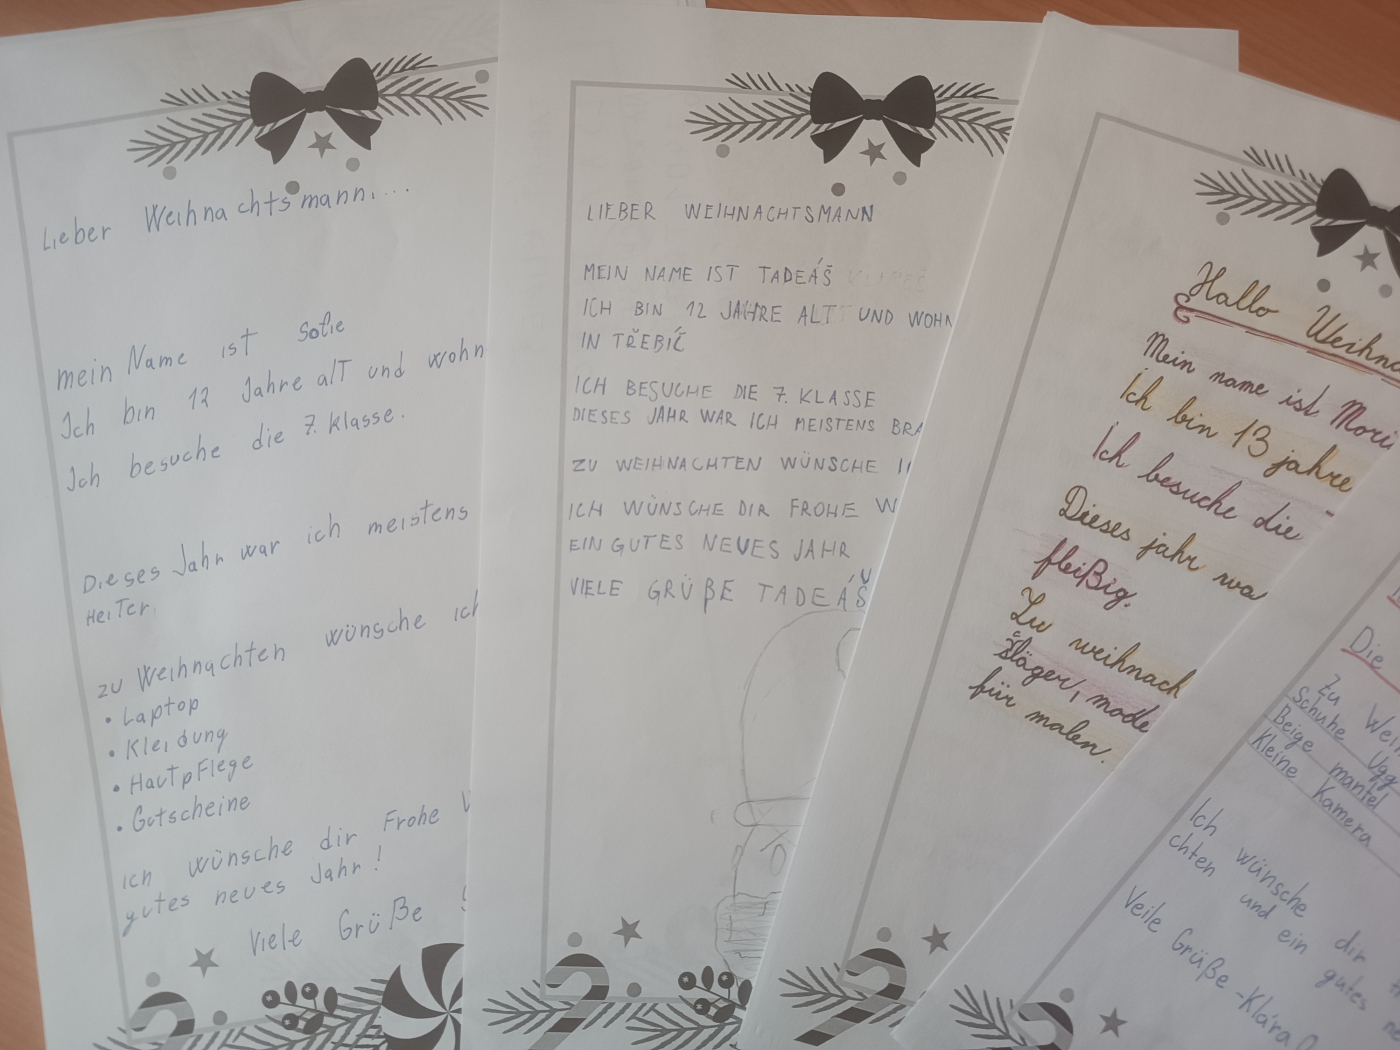 Lieber Weihnachtsmann....
mein Name ist Sofie
Ich bin 12 Jahre alT und wohn
Ich besuche die 7. klasse.
Dieses Jahr war ich meistens
HeiTer.
zu Weihnachten wünsche ich
• Laptop
• Kleidung
• HautpFlege
• Gutscheine
ich wünsche dir Frohe W
gutes neues Jahr!
Viele Grüße S
LIEBER WEIHNACHTSMANN
MEIN NAME IST TADEÁŠ
ICH BIN 12 JAHRE ALT UND WOHN
IN TŘEBÍČ
ICH BESUCHE DIE 7. KLASSE
DIESES JAHR WAR ICH MEISTENS BRA
ZU WEIHNACHTEN WÜNSCHE IC
ICH WÜNSCHE DIR FROHE W
EIN GUTES NEUES JAHR
VIELE GRÜßE TADEÁŠ
Hallo Weihna
Mein name ist Mori
Ich bin 13 jahre
Ich besuche die
Dieses jahr wa
fleißig.
Zu weihnach
mode
für malen.
Die
Zu Wei
Schuhe Ugg
Beige mantel
Kleine Kamera
Ich wünsche dir
chten und ein gutes
Veile Grüße - Klára